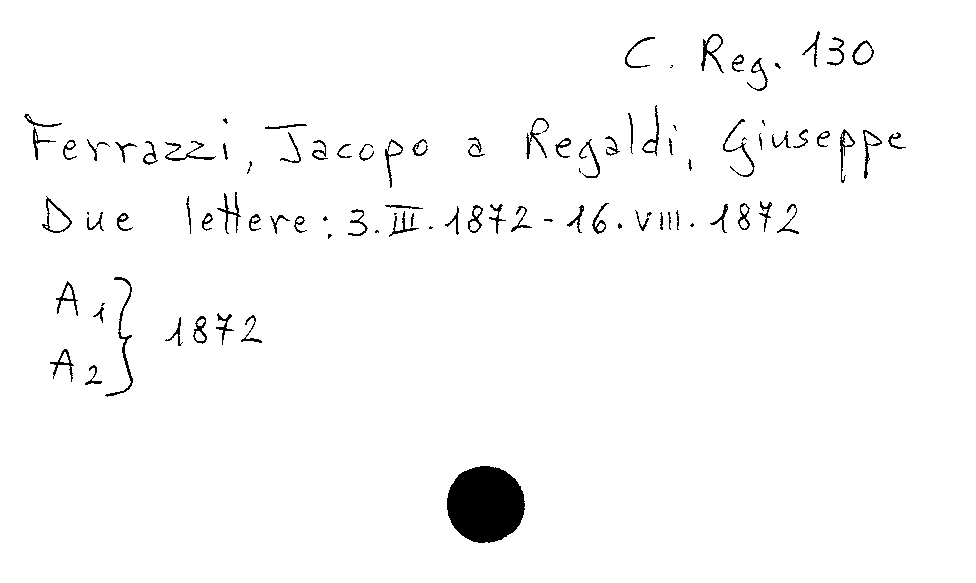 C. Reg. 130
Ferrazzi, Jacopo a Regaldi, Giuseppe
Due lettere: 3.III.1872-16.VIII.1872
A1
A2 } 1872